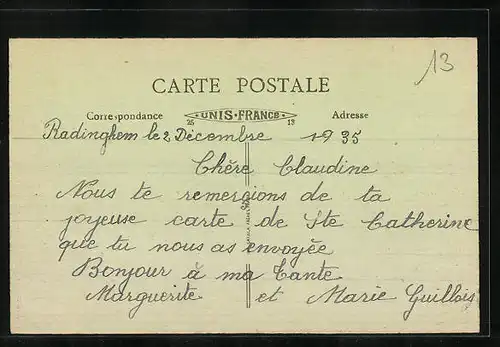 13
CARTE POSTALE
Correspondance UNIS-FRANCE Adresse
25 13
Radinghem le 2 Décembre 1935
Chère Claudine
Nous te remercions de ta
joyeuse carte de Ste Catherine
que tu nous as envoyée
Bonjour à ma Tante
Marguerite et Marie Guillois